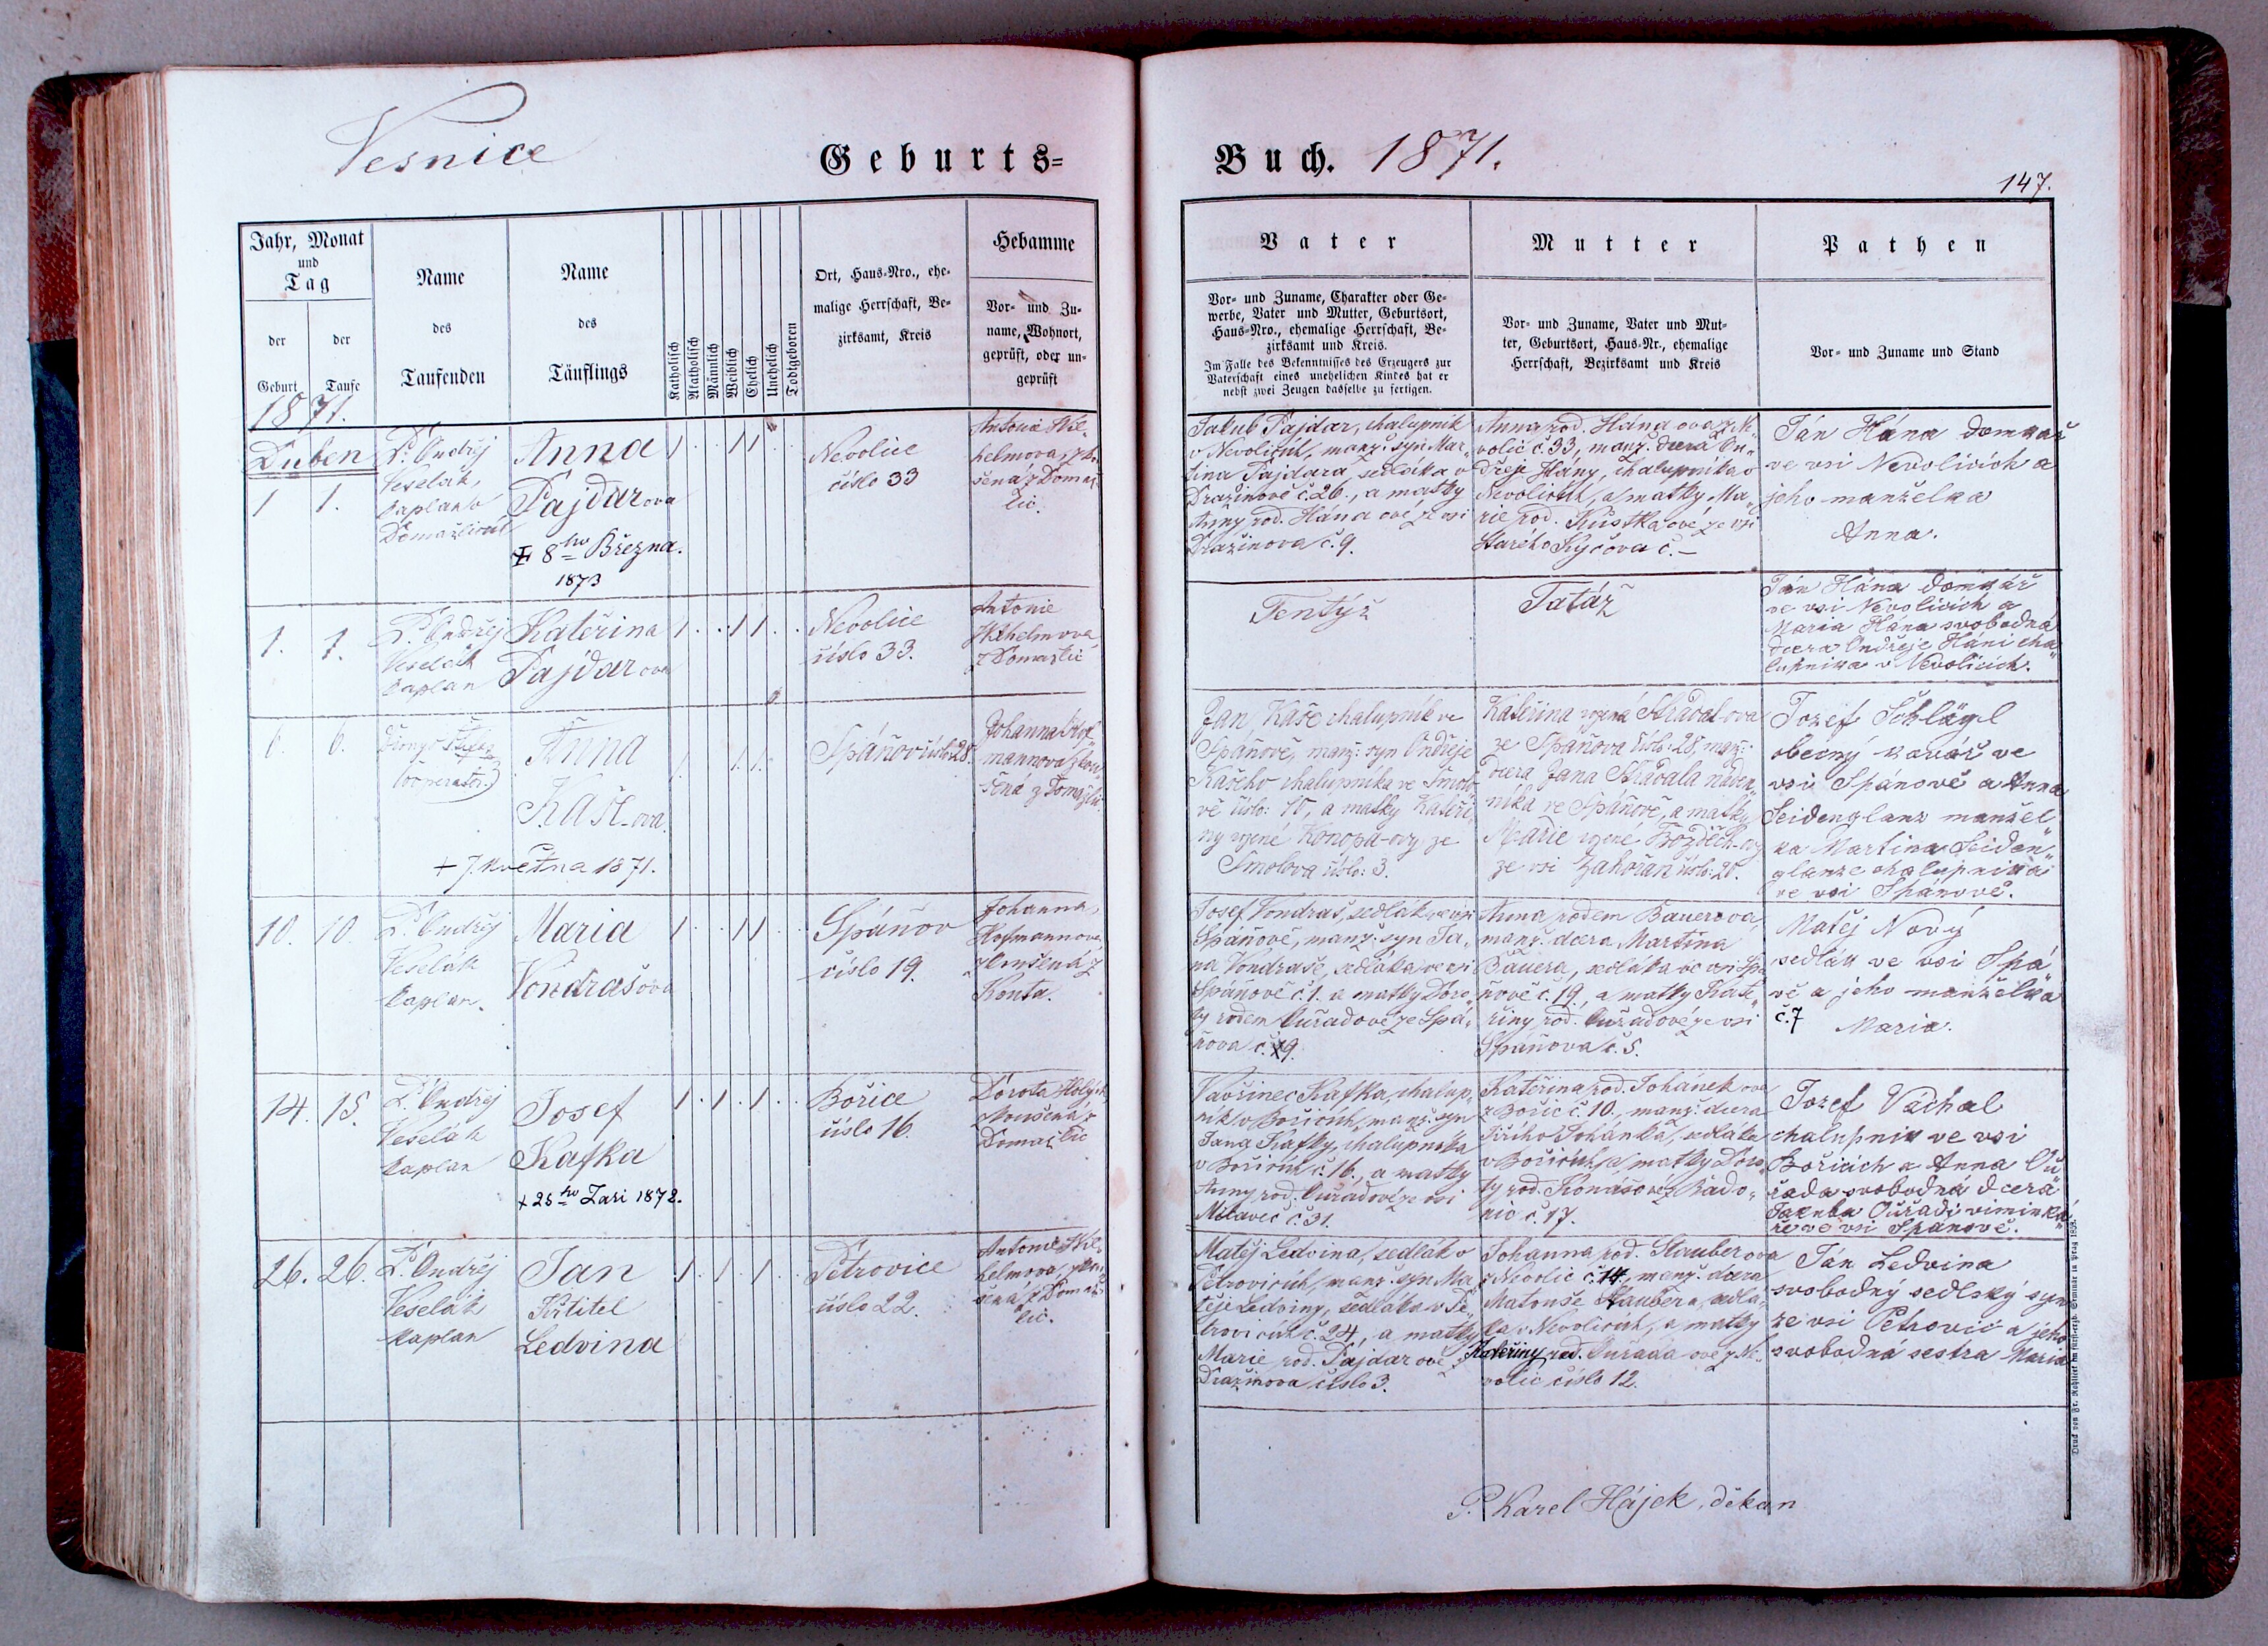 Vesnice
Geburts=
Buch. 1871.
147.
Jahr, Monat
und
Tag
der
Geburt
der
Taufe
Name
des
Taufenden
Name
des
Täuflings
Katholisch
Akatholisch
Männlich
Weiblich
Ehelich
Unehelich
Todtgeboren
Ort, Haus-Nro., ehe-
malige Herrschaft, Be-
zirksamt, Kreis
Hebamme
Vor- und Zu-
name, Wohnort,
geprüft, oder un-
geprüft
Vater
Vor- und Zuname, Charakter oder Ge-
werbe, Vater und Mutter, Geburtsort,
Haus-Nro., ehemalige Herrschaft, Be-
zirksamt und Kreis.
Im Falle des Bekenntnisses des Erzeugers zur
Vaterschaft eines unehelichen Kindes hat er
nebst zwei Zeugen dasselbe zu fertigen.
Mutter
Vor- und Zuname, Vater und Mut-
ter, Geburtsort, Haus-Nr., ehemalige
Herrschaft, Bezirksamt und Kreis
Pathen
Vor- und Zuname und Stand
1871.
Duben
1 1.
P. Ondřej
Veselák,
kaplan v
Domažlicích
Anna
Pajdarova
8ho Března.
1873
1 . . 1 1 . .
Nevolice
číslo 33
Antonie Wil-
helmova, zkou-
šená z Domaž-
lic.
Jakub Pajdar, chalupník
v Nevolicích, manž. syn Mar-
tina Pajdara, sedláka v
Dražinově č. 26., a matky
Anny rod. Hána ové ze vsi
Dražinova č. 9.
Anna rod. Hána ova z Ne
volic č. 33, manž. dcera On-
dřeje Hány, chalupníka v
Nevolicích, a matky Ma-
rie rod. Kustka ové ze vsi
Starého Kyčova č. –
Ján Hána domkař
ve vsi Nevolicích a
jeho manželka
Anna.
1. 1.
P. Ondřej
Veselák
kaplan
Kateřina
Pajdarova
1 . . 1 1 . .
Nevolice
číslo 33.
Antonie
Wilhelmova
z Domažlic
Tentýž
Tatáž
Ján Hána domkář
ve vsi Nevolicích a
Maria Hána svobodná
dcera Ondřeje Háni cha
lupnika v Nevolicích.
6. 6.
kooperator
Anna
Kaše-ova.
+ 7. května 1871.
1. 1. 1.
Spáňov číslo: 28.
Johanna Hof
mannova zkou
šená z Domažlic
Jan Kaše chalupník ve
Spáňově, manž: syn Ondřeje
Kašeho chalupníka ve Smolo
vě číslo: 15, a matky Kateři
ny rozené Konopa-ovy ze
Smolova číslo: 3.
Kateřina rozená Střádal-ova
ze Spáňova číslo: 28, manž:
dcera Jana Střádala náden
níka ve Spáňově, a matky
Marie rozené
ze vsi Zahořan číslo: 20.
Jozef Schlägl
obecný kovář ve
vsi Spánově a Anna
Seidenglanz manžel
ka Martina Seiden
glanze chalupnika
ve vsi Spánově.
10. 10.
P. Ondřej
Veselák
kaplan.
Maria
Vondrašova
1 . . 1 1 . .
Spáňov
číslo 19.
Johanna
Hofmannova
zkoušená z
Kouta.
Josef Vondraš, sedlák ve vsi
Spáňově, manž. syn Ja-
na Vondraše, sedláka ve vsi
Spáňově č. 1. a matky Doro-
ty rodem Ouřadové ze Spá-
ňova č. 19.
Anna rodem Bauerova,
manž. dcera Martina
Bauera, sedláka ve vsi Spá
ňově č. 19., a matky Kate-
řiny rod. Ouřadové ze vsi
Spáňova č. 5.
Matěj Nový
sedlák ve vsi Spá
vě a jeho manželka
č. 7 Maria.
14. 15.
P. Ondřej
Veselák
kaplan
Josef
Kafka
+ 25ho Zari 1872.
1 . 1 . 1 . .
Bořice
číslo 16.
Dorota
zkoušená z
Domažlic
Vavřinec Kafka, chalup-
ník v Bořicích, manž. syn
Jana Kafky, chalupníka
v Bořicích č. 16., a matky
Anny rod. Ouřadové ze vsi
Milaveč č. 31.
Kateřina rod. Johánek ova
z Bořic č. 10., manž. dcera
Jiřího Johánka, sedláka
v Bořicích, a matky Doro-
ty rod. Konášové z Rado-
nic č. 17.
Jozef Váchal
chalupnik ve vsi
Bořicich a Anna Ou
řada svobodná dcera
Jakuba Ouřadi viminká
ře ve vsi Spánově.
26. 26.
P. Ondřej
Veselák
kaplan
Jan
Křtitel
Ledvina
1 . 1 . 1 . .
Petrovice
číslo 22.
Antonie Wil-
helmova, zkou-
šena z Domaž-
lic.
Matěj Ledvina, sedlák v
Petrovicích, manž. syn Ma
těje Ledviny, sedláka v Pe-
trovicích č. 24, a matky
Marie rod. Pajdar ové z
Dražinova číslo 3.
Johanna rod. Stauberova
z Nevolic č. 14, manž. dcera
Matouše Staubera, sedlá-
ka v Nevolicích, a matky
Kateřiny rod. Ouřada ové z Ne-
volic číslo 12.
Ján Ledvina
svobodný sedlský syn
ze vsi Petrovic a jeho
svobodná sestra Maria
P. Karel Hájek, děkan